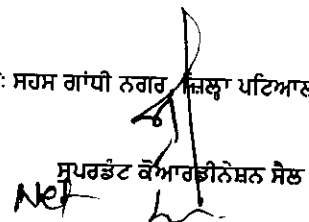 : ਸਹਸ ਗਾਂਧੀ ਨਗਰ ਜ਼ਿਲ੍ਹਾ ਪਟਿਆਲ
ਸੁਪਰਡੰਟ ਕੋਆਰਡੀਨੇਸ਼ਨ ਸੈਲ